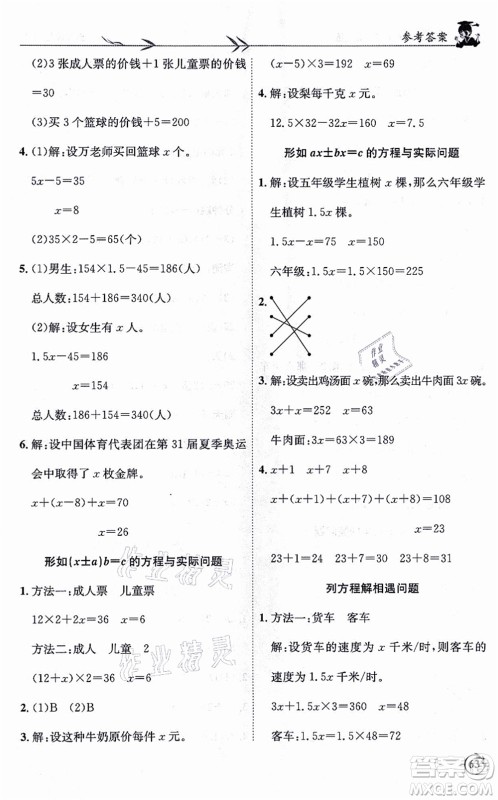 参考答案
(2)3 张成人票的价钱+1 张儿童票的价钱
=30
(3)买 3 个篮球的价钱+5=200
4. (1)解:设万老师买回篮球 x 个。
5x-5=35
x=8
(2)35×2-5=65(个)
5. (1)男生:154×1.5-45=186(人)
总人数:154+186=340(人)
(2)解:设女生有 x 人。
1.5x-45=186
x=154
总人数:154+186=340(人)
6. 解:设中国体育代表团在第 31 届夏季奥运
会上获得 x 枚金牌。
x+(x-8)+x=70
x=26
形如(x±a)b=c 的方程与实际问题
1. 方法一:成人票 儿童票
12×2+2x=36 x=6
方法二:成人 儿童 2
(12+x)×2=36 x=6
2. (1)B (2)B
3. 解:设这种牛奶原价每件 x 元。
(x-5)×3=192 x=69
4. 解:设梨每千克 x 元。
12.5×32-32x=160 x=7.5
形如 ax±bx=c 的方程与实际问题
1. 解:设五年级学生植树 x 棵,那么六年级学
生植树 1.5x 棵。
1.5x-x=75 x=150
六年级:1.5x=1.5×150=225
2.
3. 解:设卖出鸡汤面 x 碗,那么卖出牛肉面 3x 碗。
3x+x=84 x=21
牛肉面:3x=3×21=63
4. x+1 x+7 x+8
x+(x+1)+(x+7)+(x+8)=108
x=23
23+1=24 23+7=30 23+8=31
列方程解相遇问题
1. 方法一:货车 客车
解:设货车的速度为 x 千米/时,则客车的
速度为 1.5x 千米/时。
3x+1.5x×3=600 x=80
客车:1.5x=1.5×80=120
63
作业精灵
作业精灵
作业精灵